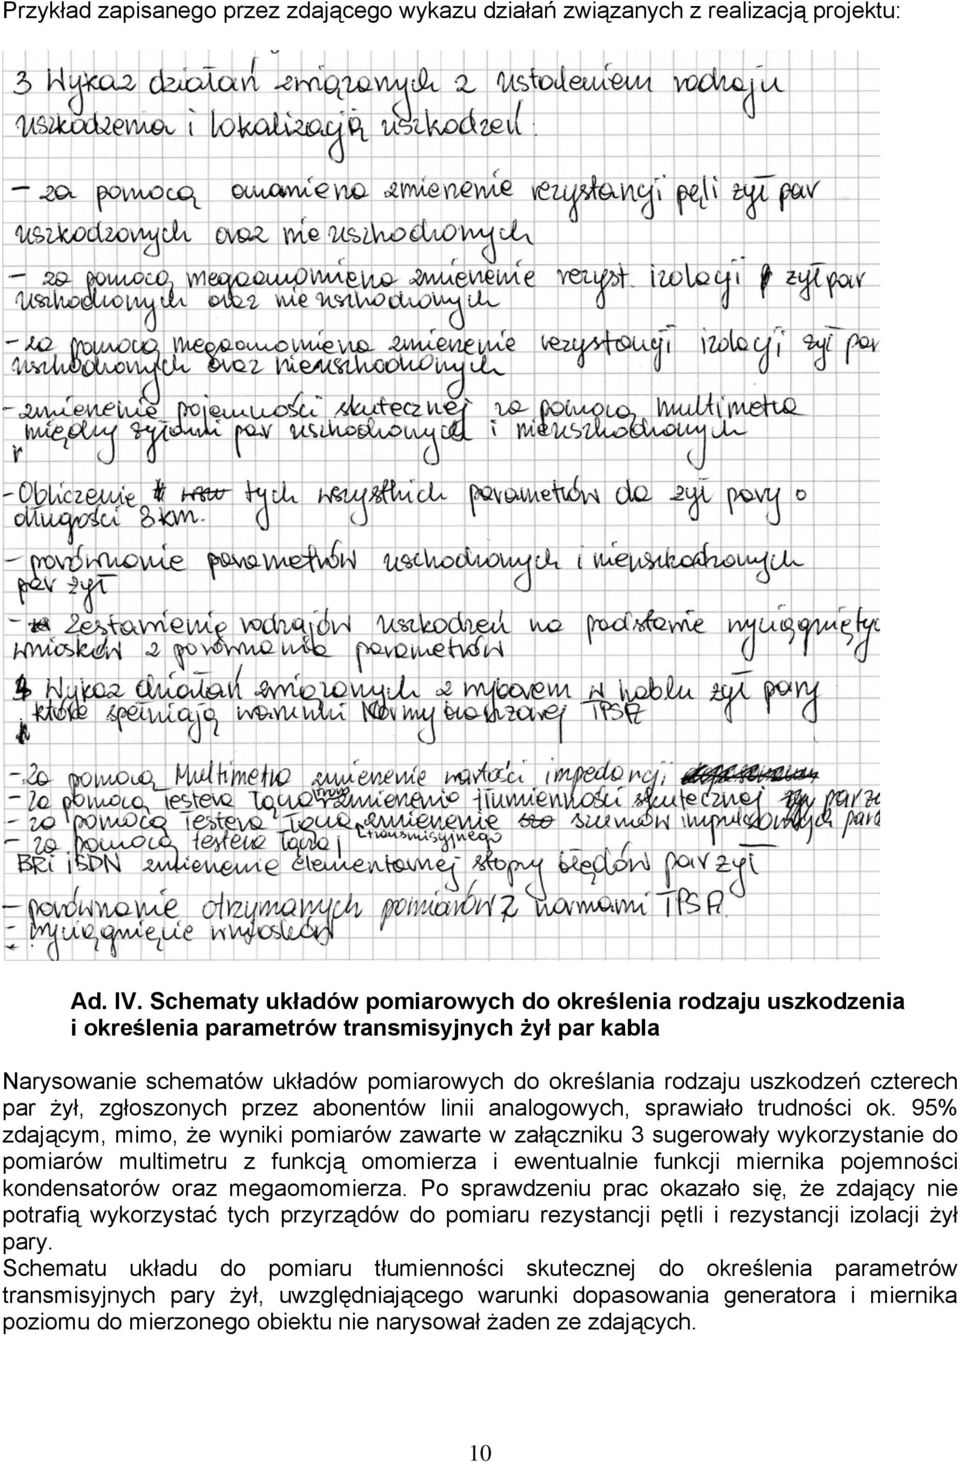 Przykład zapisanego przez zdającego wykazu działań związanych z realizacją projektu:
3 Wykaz działań zmiązanych z ustaleniem rodzaju
uszkodzenia i lokalizacją uszkodzeń:
- za pomocą omomierza zmierzenie rezystancji pęli żył par
uszkodzonych oraz nie uszkodzonych
- za pomocą megaomomierza zmierzenie rezyst. izolacji żył par
uszkodzonych oraz nie uszkodzonych
- za pomocą megaomomierza zmierzenie rezystancji izolacji żył par
uszkodzonych oraz nieuszkodzonych
- zmierzenie pojemności skutecznej za pomocą multimetra
między żyłami par uszkodzonych i nieuszkodzonych
- Obliczenie tych wszystkich parametrów dla żył pary o
długości 3km.
- porównanie parametrów uszkodzonych i nieuszkodzonych
par żył
- Zestawienie rodzajów uszkodzeń na podstawie wyciągnięty
wniosków z porównania parametrów
4 Wykaz działań zmiązanych z wyborem w kablu żył pary
które spełniają warunki Normy zakładowej TPSA
- Za pomocą Multimetra zmierzenie wartości impedancji
- Za pomocą Testera Łącza zmierzenie tłumienności skutecznej parze
- za pomocą Testera Łącza zmierzenie szumów impulsowych para
- za pomocą testera łącza transmisyjnego
BRI ISDN zmierzenie elementarnej stopy błędów par żył
- porównanie otrzymanych pomiarów z normami TPSA.
- wyciągnięcie wniosków
Ad. IV. Schematy układów pomiarowych do określenia rodzaju uszkodzenia
i określenia parametrów transmisyjnych żył par kabla
Narysowanie schematów układów pomiarowych do określania rodzaju uszkodzeń czterech
par żył, zgłoszonych przez abonentów linii analogowych, sprawiało trudności ok. 95%
zdającym, mimo, że wyniki pomiarów zawarte w załączniku 3 sugerowały wykorzystanie do
pomiarów multimetru z funkcją omomierza i ewentualnie funkcji miernika pojemności
kondensatorów oraz megaomomierza. Po sprawdzeniu prac okazało się, że zdający nie
potrafią wykorzystać tych przyrządów do pomiaru rezystancji pętli i rezystancji izolacji żył
pary.
Schematu układu do pomiaru tłumienności skutecznej do określenia parametrów
transmisyjnych pary żył, uwzględniającego warunki dopasowania generatora i miernika
poziomu do mierzonego obiektu nie narysował żaden ze zdających.
10